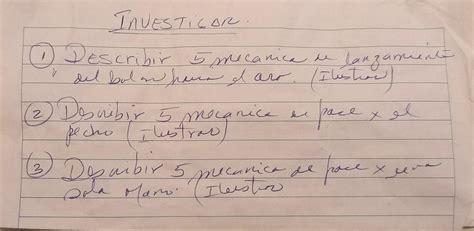 INVESTIGAR.
① DESCRIBIR 5 mecanica de lanzamiento
del balon para el aro. (Ilustrar)
② Describir 5 mecanica de pase x el
pecho (Ilustrar)
③ Describir 5 mecanica de pase x una
sola mano. (Ilustrar